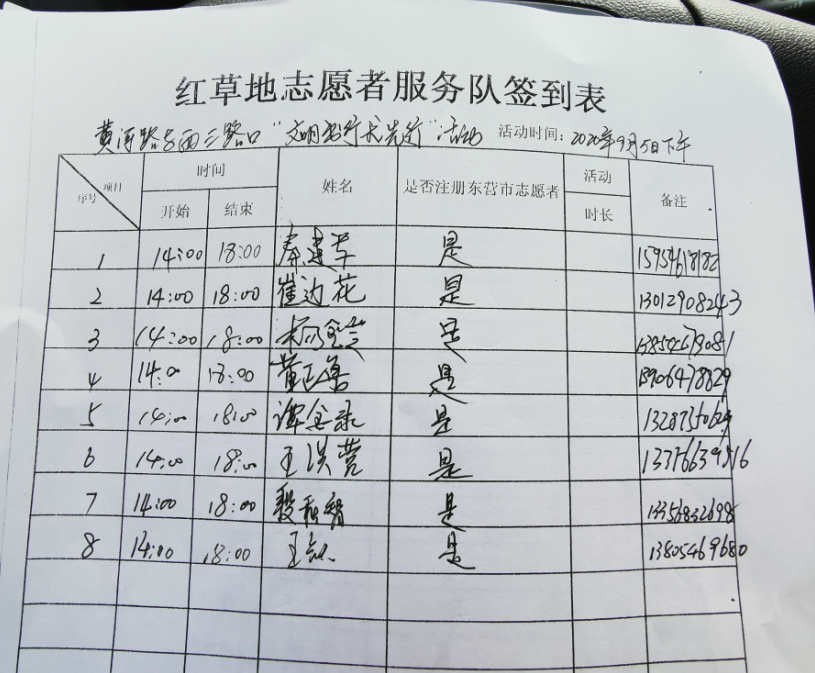 红草地志愿者服务队签到表
黄河路与西三路口"文明出行我先行"活动 活动时间：2020年9月5日下午
项目 序号 时间 姓名 是否注册东营市志愿者 活动 备注
开始 结束 时长
1 14:00 18:00 是 15954618182
2 14:00 18:00 崔边花 是 13012908243
3 14:00 18:00 是
4 14:00 18:00 是 13906478829
5 14:00 18:00 谭金录 是
6 14:00 18:00 王洪营 是
7 14:00 18:00 是
8 14:00 18:00 王 是 13805469680